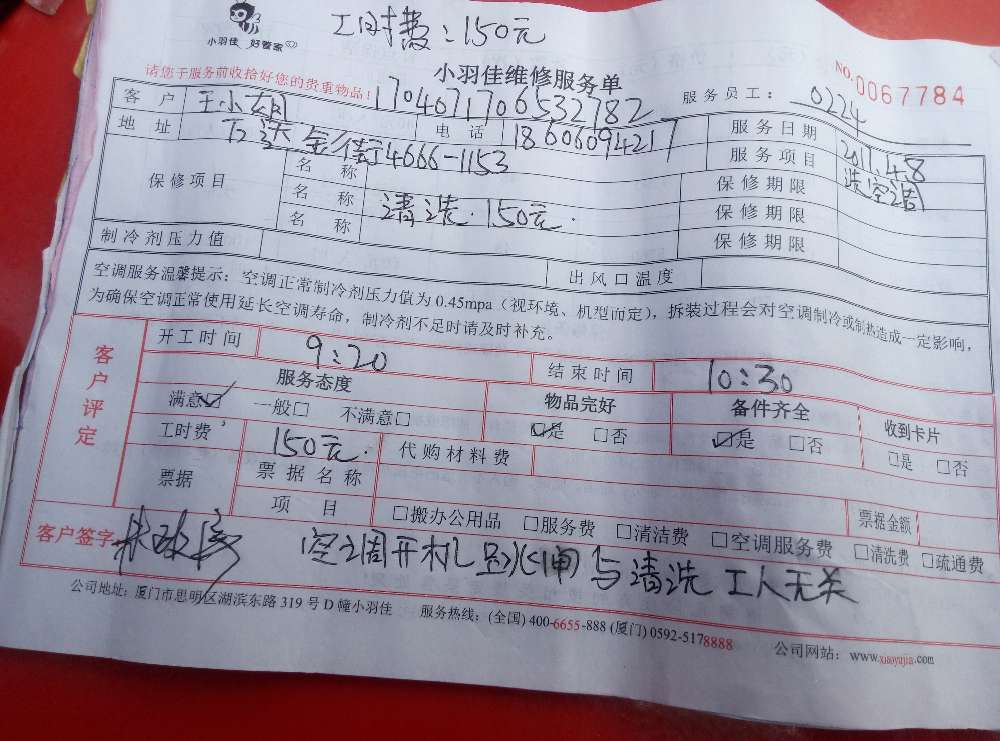 小羽佳 好管家
工时费：150元
小羽佳维修服务单
NO. 0067784
请您于服务前收拾好您的贵重物品！
1704671706532782
服务员工： 0224
客户 王小
电话 18606094217
服务日期 2011.4.8
地址 4666-1153
服务项目 洗空调
保修项目
名称
保修期限
名称 清洗.150元.
保修期限
名称
保修期限
制冷剂压力值
出风口温度
空调服务温馨提示：空调正常制冷剂压力值为 0.45mpa（视环境、机型而定），拆装过程会对空调制冷或制热造成一定影响，
为确保空调正常使用延长空调寿命，制冷剂不足时请及时补充。
客户评定
开工时间 9:20
结束时间 10:30
服务态度
物品完好
备件齐全
收到卡片
满意☑ 一般□ 不满意□
☑是 □否
☑是 □否
□是 □否
工时费 150元.
代购材料费
票据
票据名称
票据金额
项目
□搬办公用品 □服务费 □清洁费 □空调服务费 □清洗费 □疏通费
客户签字
空调开机 与清洗工人无关
公司地址：厦门市思明区湖滨东路 319 号 D 幢小羽佳 服务热线：(全国) 400-6655-888 (厦门) 0592-5178888
公司网站：www.xiaoyujia.com